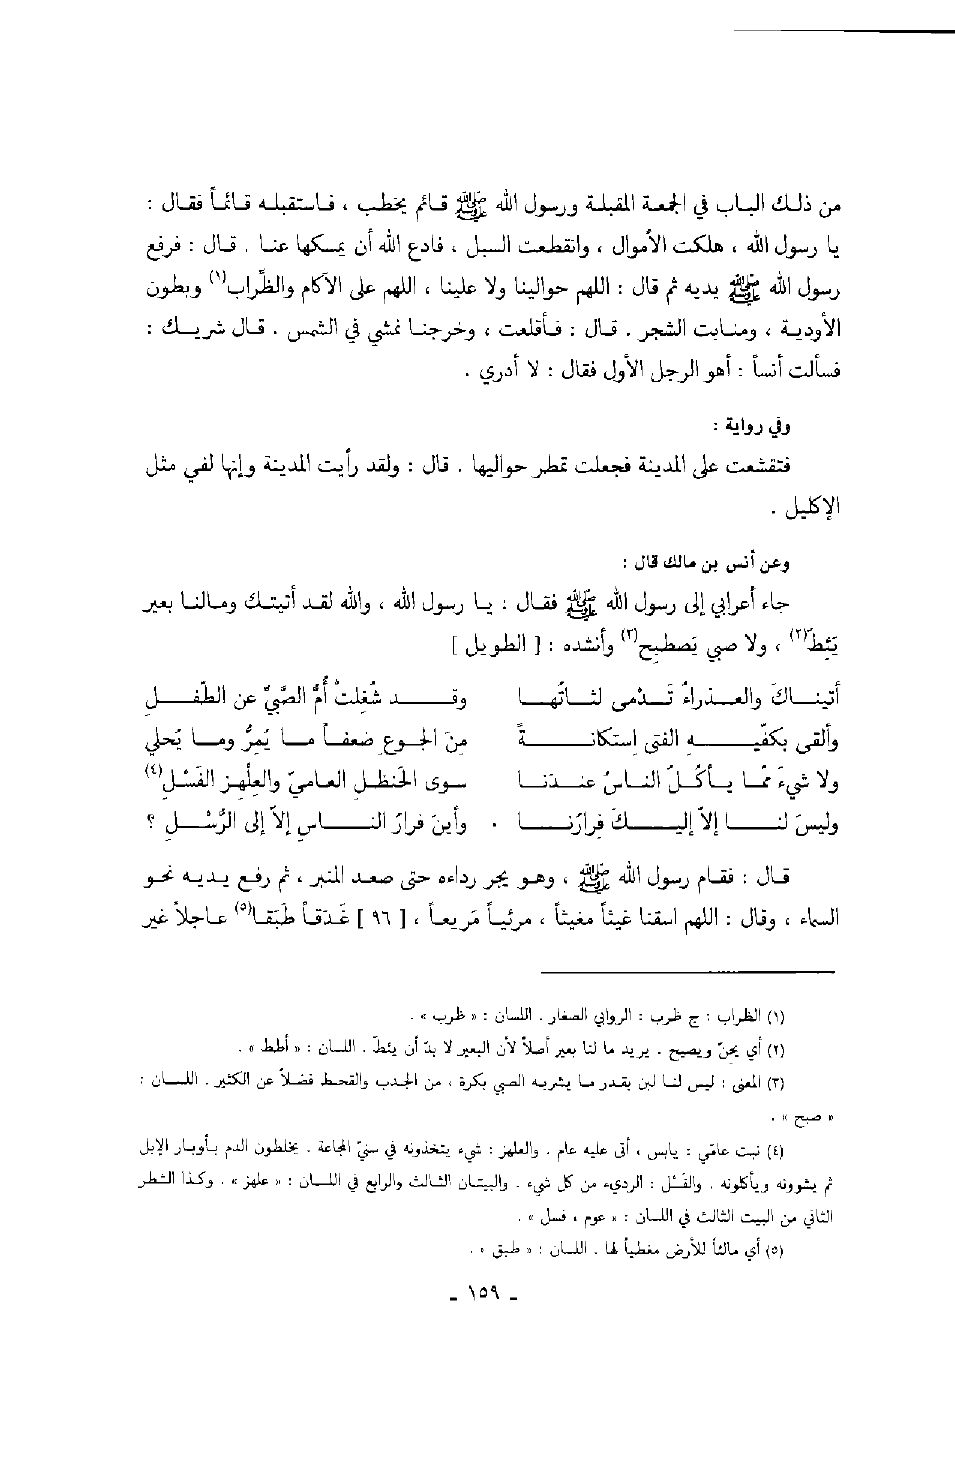 من ذلك الباب في الجمعة المقبلة ورسول الله ﷺ قائم يخطب ، فاستقبله قائماً فقال :
يا رسول الله ، هلكت الأموال ، وانقطعت السبل ، فادع الله أن يمسكها عنا . قال : فرفع
رسول الله ﷺ يديه ثم قال : اللهم حوالينا ولا علينا ، اللهم على الآكام والظِّراب(١) وبطون
الأودية ، ومنابت الشجر . قال : فأقلعت ، وخرجنا نمشي في الشمس . قال شريك :
فسألت أنساً : أهو الرجل الأول فقال : لا أدري .
وفي رواية :
فتقشعت على المدينة فجعلت تمطر حواليها . قال : ولقد رأيت المدينة وإنها لفي مثل
الإكليل .
وعن أنس بن مالك قال :
جاء أعرابي إلى رسول الله ﷺ فقال : يا رسول الله ، والله لقد أتيتك ومالنا بعير
يَئِطّ(٢) ، ولا صبي يَصطبِح(٣) وأنشده : [ الطويل ]
أتيناكَ والعذراءُ تَدْمى لثاتُها وقد شُغِلتْ أُمُّ الصَّبيِّ عن الطّفلِ
وألقى بكفّيه الفتى استكانةً مِنَ الجوعِ ضعفاً ما يُمِرُّ وما يُحلي
ولا شيءَ ممّا يأكلُ الناسُ عندَنا سوى الحَنظلِ العاميّ والعِلْهِزِ الفَسْلِ(٤)
وليسَ لنا إلاّ إليكَ فِرارُنا . وأينَ فرارُ الناسِ إلاّ إلى الرُّسْلِ ؟
قال : فقام رسول الله ﷺ ، وهو يجر رداءه حتى صعد المنبر ، ثم رفع يديه نحو
السماء ، وقال : اللهم اسقنا غيثاً مغيثاً ، مرئياً مَريعاً ، [ ٩٦ ] غَدَقاً طَبَقا(٥) عاجلاً غير
(١) الظراب : ج ظرب : الروابي الصغار . اللسان : « ظرب » .
(٢) أي يحنّ ويصيح . يريد ما لنا بعير أصلاً لأن البعير لا بدّ أن يئطّ . اللسان : « أطط » .
(٣) المعنى : ليس لنا لبن بقدر ما يشربه الصبي بكرة ، من الجدب والقحط فضلاً عن الكثير . اللسان :
« صبح » .
(٤) نبت عاميّ : يابس ، أتى عليه عام . والعلهز : شيء يتخذونه في سنيّ المجاعة . يخلطون الدم بأوبار الإبل
ثم يشوونه ويأكلونه . والفَسْل : الرديء من كل شيء . والبيتان الثالث والرابع في اللسان : « علهز » . وكذا الشطر
الثاني من البيت الثالث في اللسان : « عوم ، فسل » .
(٥) أي مالئاً للأرض مغطياً لها . اللسان : « طبق » .
- ١٥٩ -